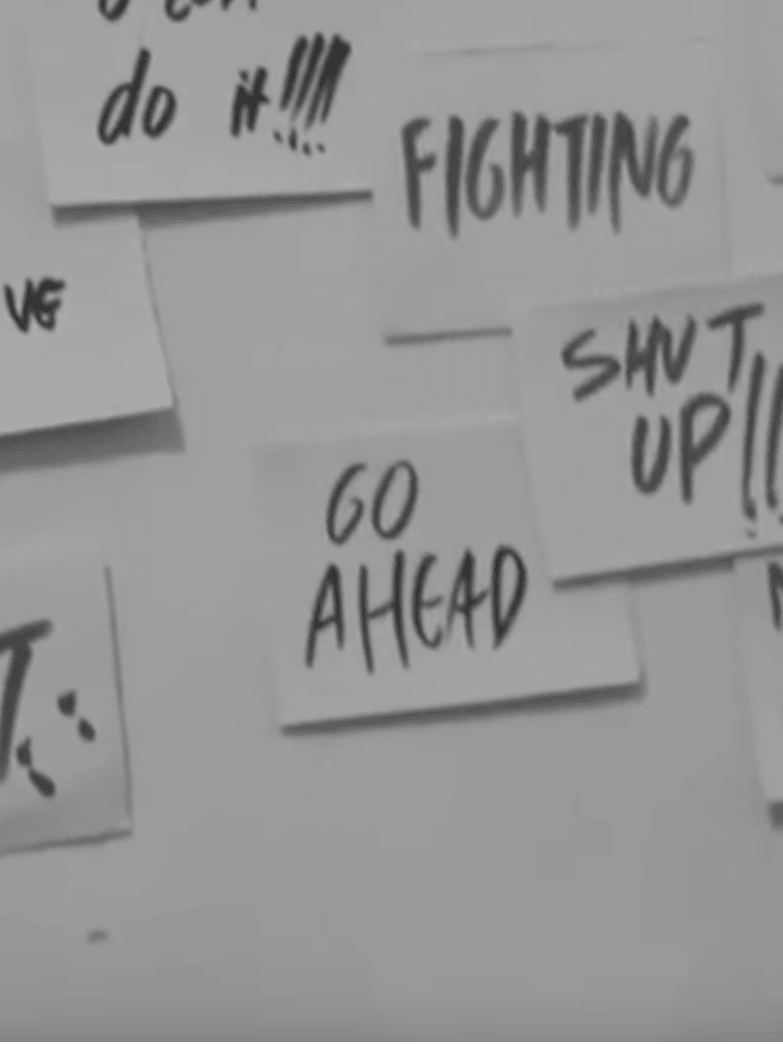 do it!!!!
FIGHTING
VE
SHUT
UP!!
GO
AHEAD
T